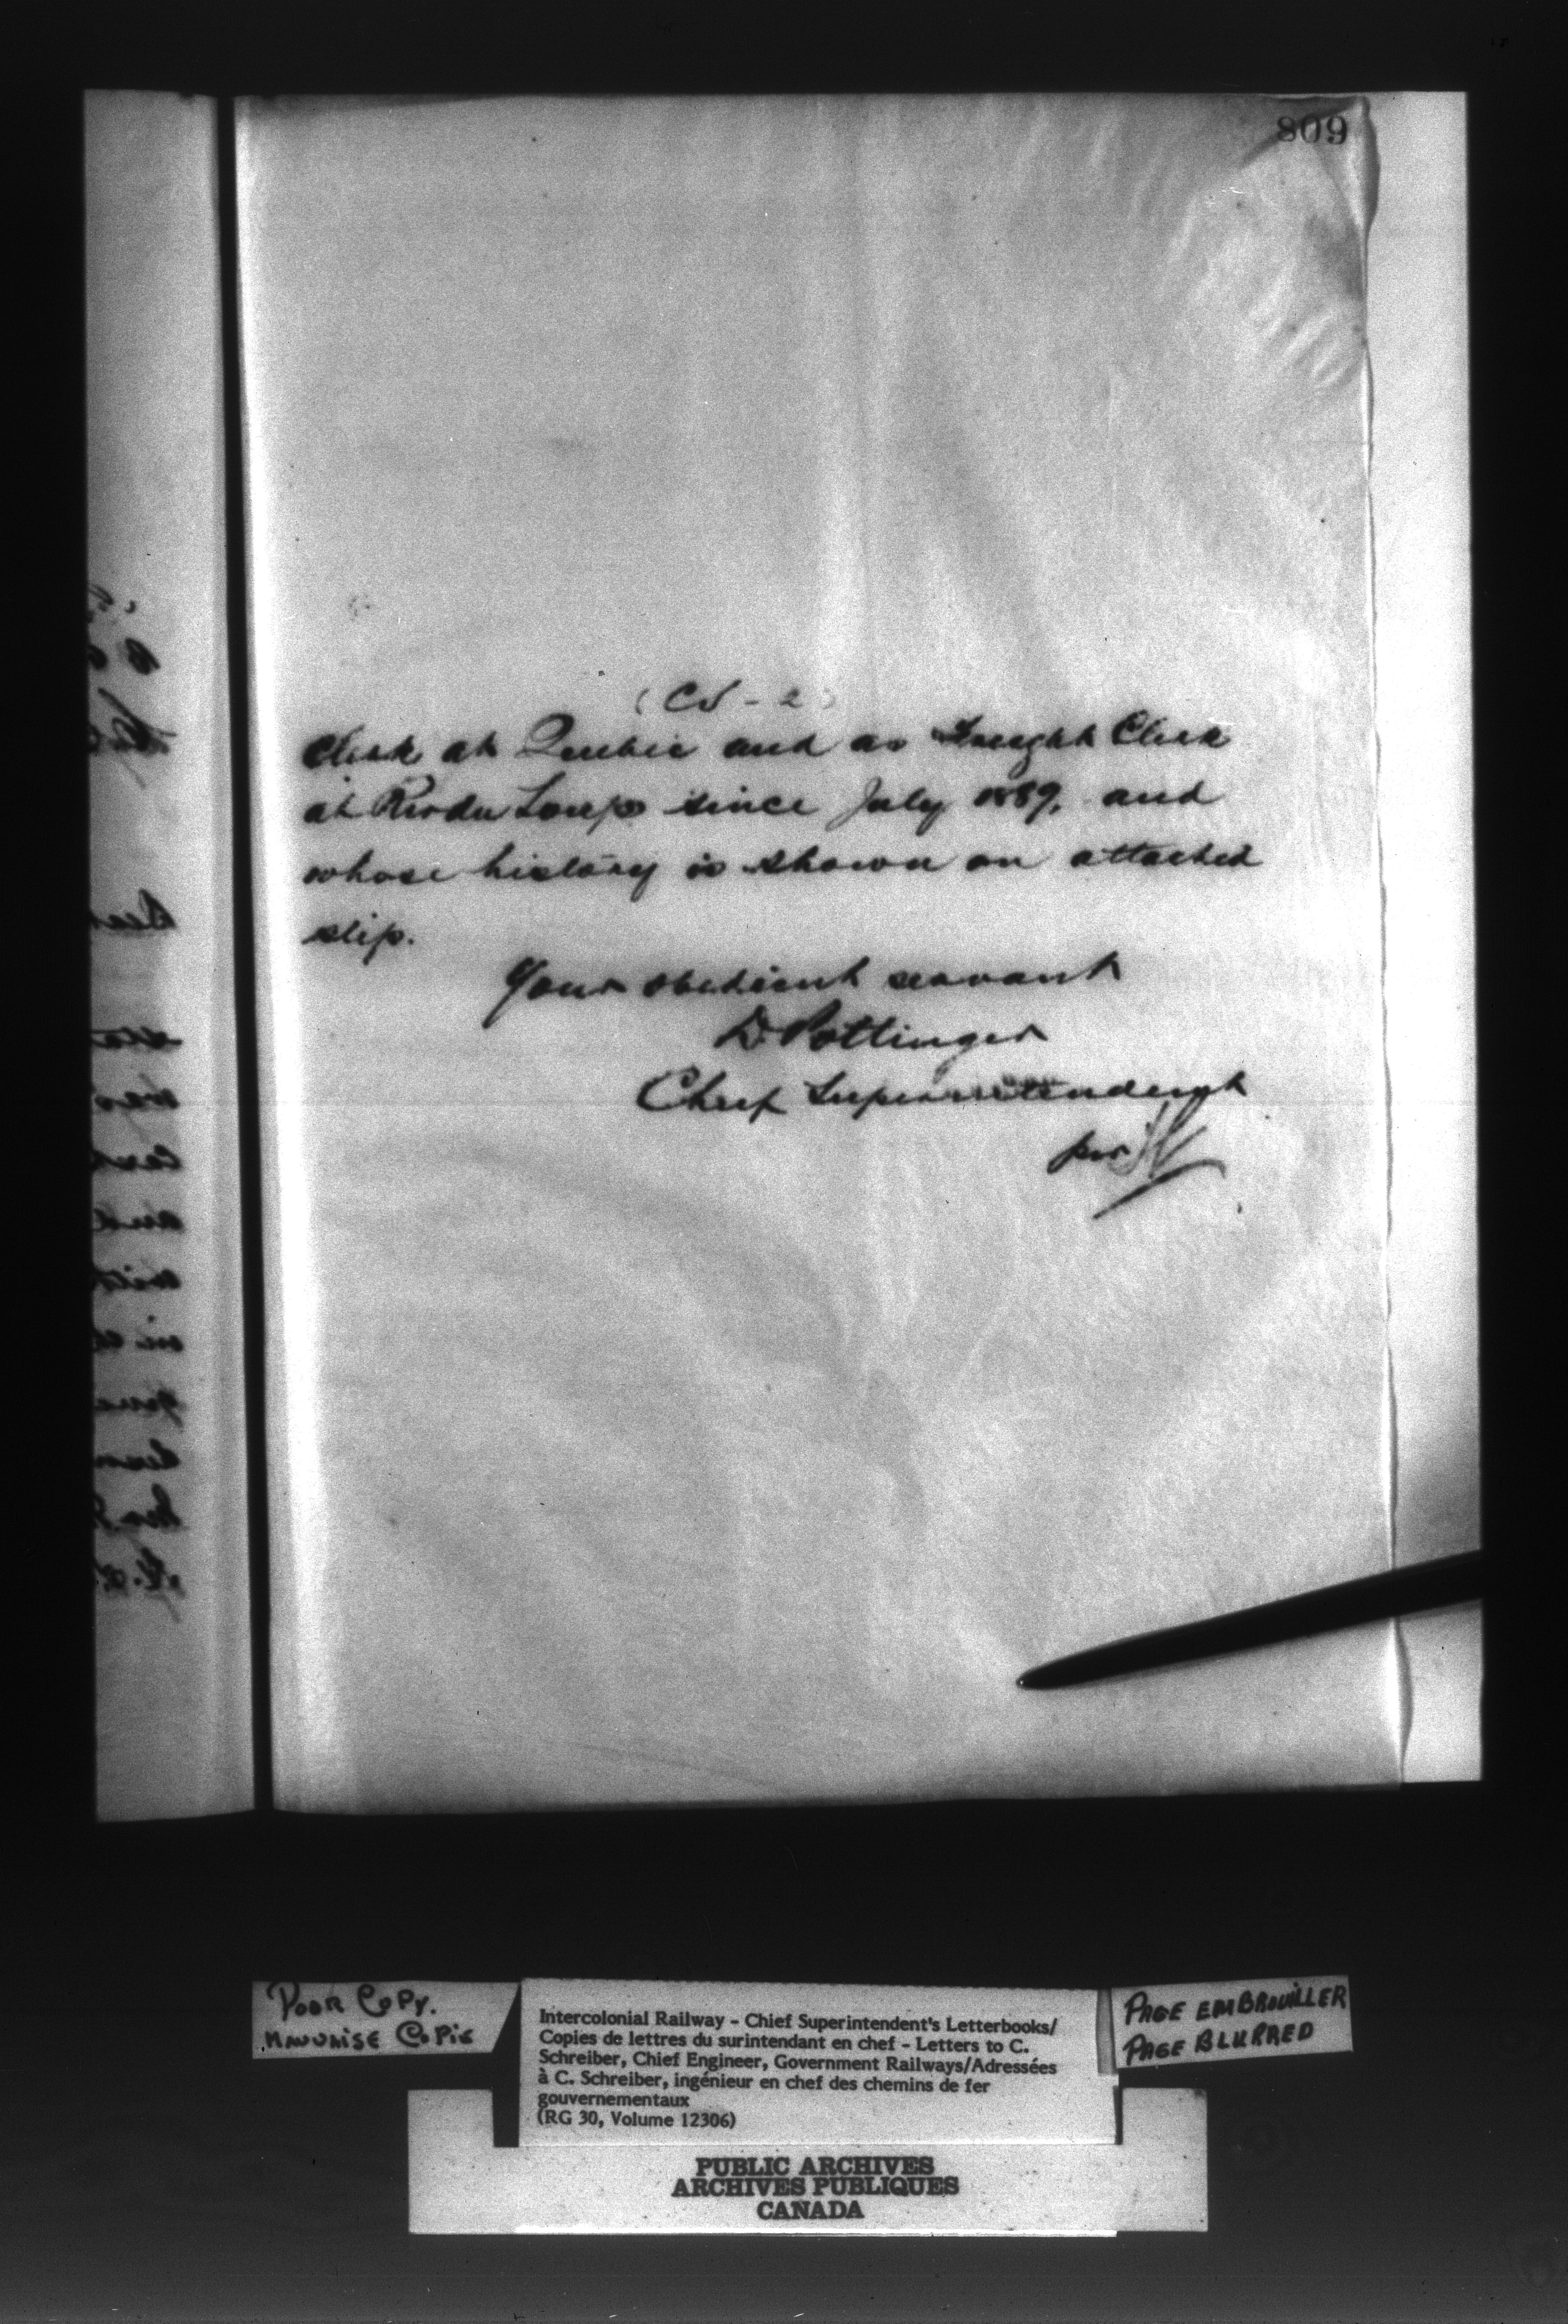 809
(CS - 2)
Clerk at Quebec and as Freight Clerk
at Riv du Loup since July 1889, and
whose history is shown on attached
slip.
Your obedient servant
D. Pottinger
Chief Superintendent
per
POOR COPY.
MAUVAISE COPIE
Intercolonial Railway - Chief Superintendent's Letterbooks/
Copies de lettres du surintendant en chef - Letters to C.
Schreiber, Chief Engineer, Government Railways/Adressées
à C. Schreiber, ingénieur en chef des chemins de fer
gouvernementaux
(RG 30, Volume 12306)
PAGE EMBROUILLER
PAGE BLURRED
PUBLIC ARCHIVES
ARCHIVES PUBLIQUES
CANADA